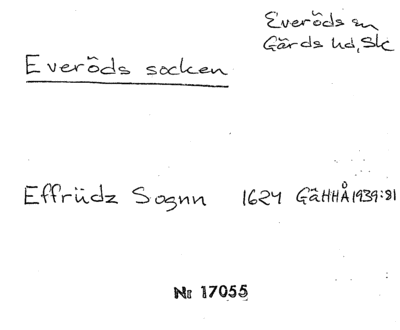 Everöds sn
Gärds hd, Sk
Everöds socken
Effrüdz Sognn 1624 GäHHÅ 1939:81
Nr 17055